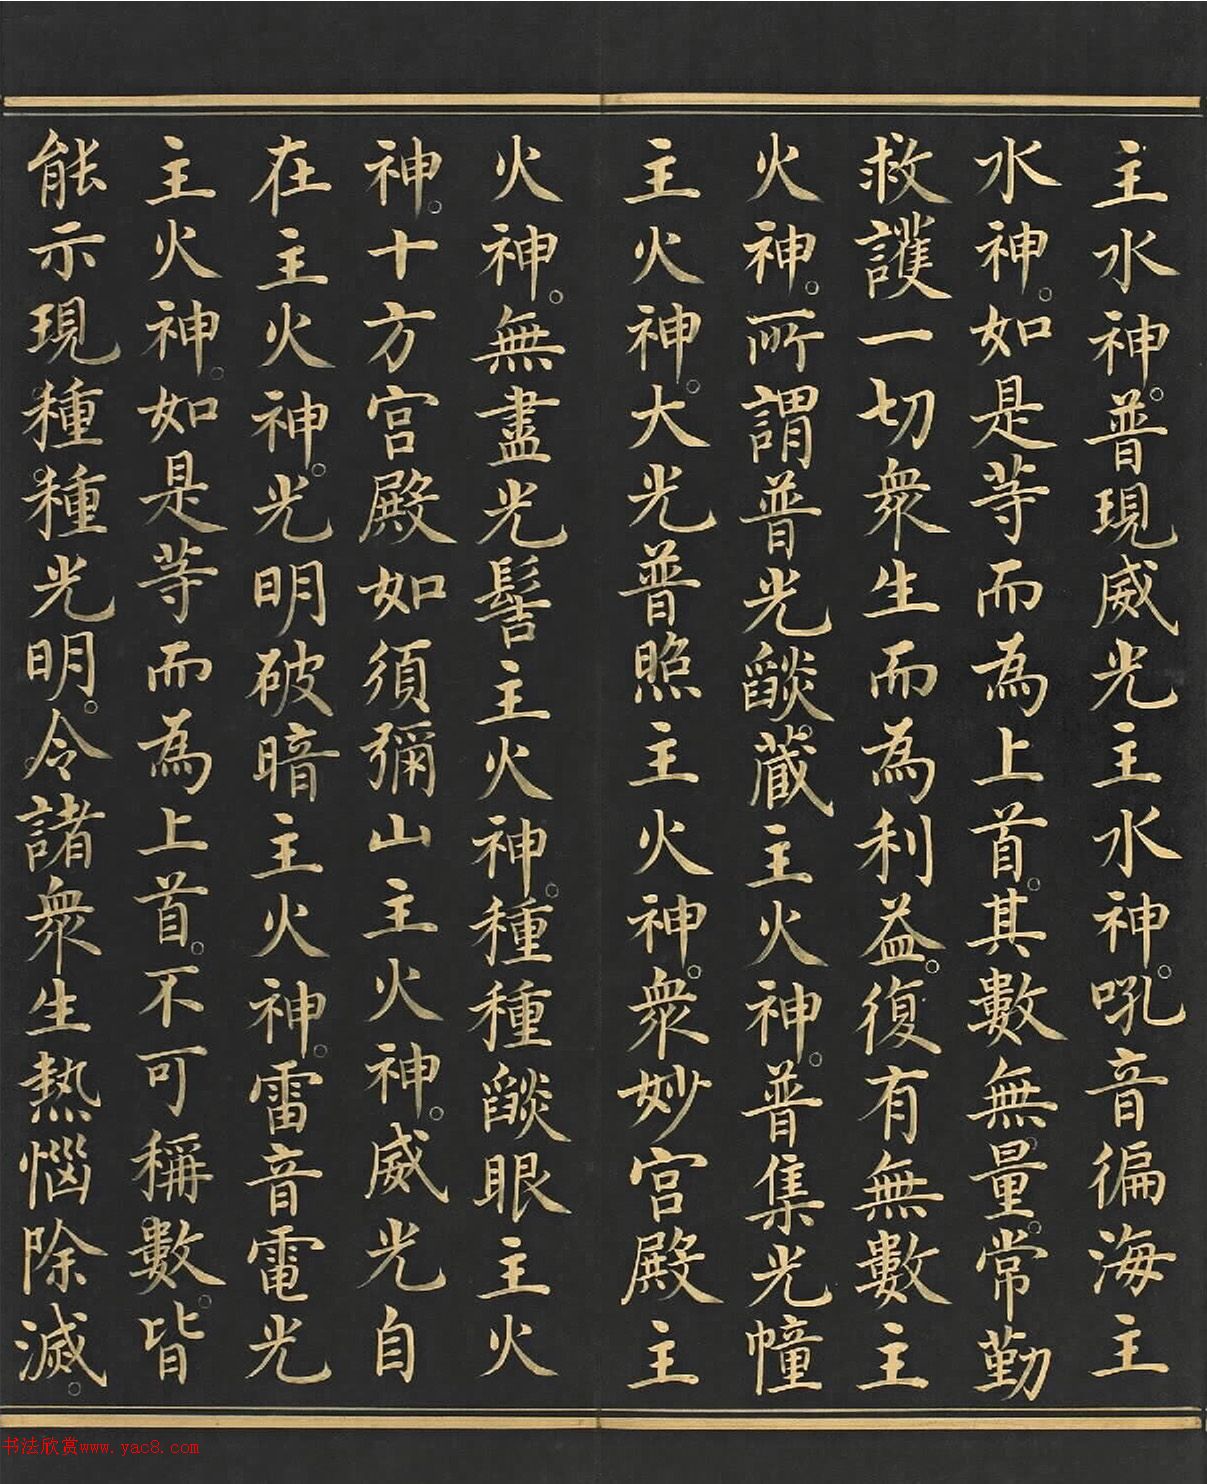 主水神。普現威光主水神。吼音徧海主
水神。如是等而為上首。其數無量。常勤
救護一切衆生而為利益。復有無數主
火神。所謂普光燄藏主火神。普集光幢
主火神。大光普照主火神。衆妙宮殿主
火神。無盡光髻主火神。種種燄眼主火
神。十方宮殿如須彌山主火神。威光自
在主火神。光明破暗主火神。雷音電光
主火神。如是等而為上首。不可稱數。皆
能示現種種光明。令諸衆生熱惱除滅。
书法欣赏www.yac8.com